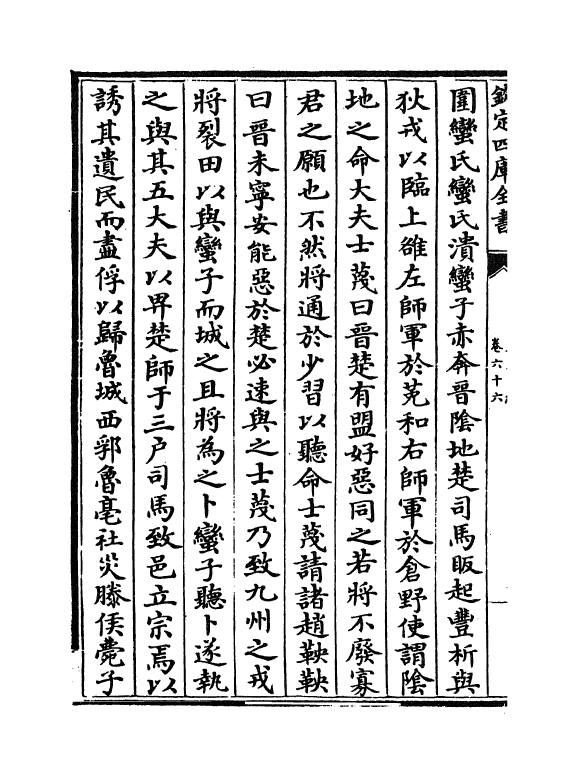 欽定四庫全書
卷六十六
圍蠻氏蠻氏潰蠻子赤奔晉陰地楚司馬販起豐析與
狄戎以臨上雒左師軍於菟和右師軍於倉野使謂陰
地之命大夫士蔑曰晉楚有盟好惡同之若將不廢寡
君之願也不然將通於少習以聽命士蔑請諸趙鞅鞅
曰晉未寧安能惡於楚必速與之士蔑乃致九州之戎
將裂田以與蠻子而城之且將為之卜蠻子聽卜遂執
之與其五大夫以畀楚師于三户司馬致邑立宗焉以
誘其遺民而盡俘以歸魯城西郛魯亳社災滕侯薨子